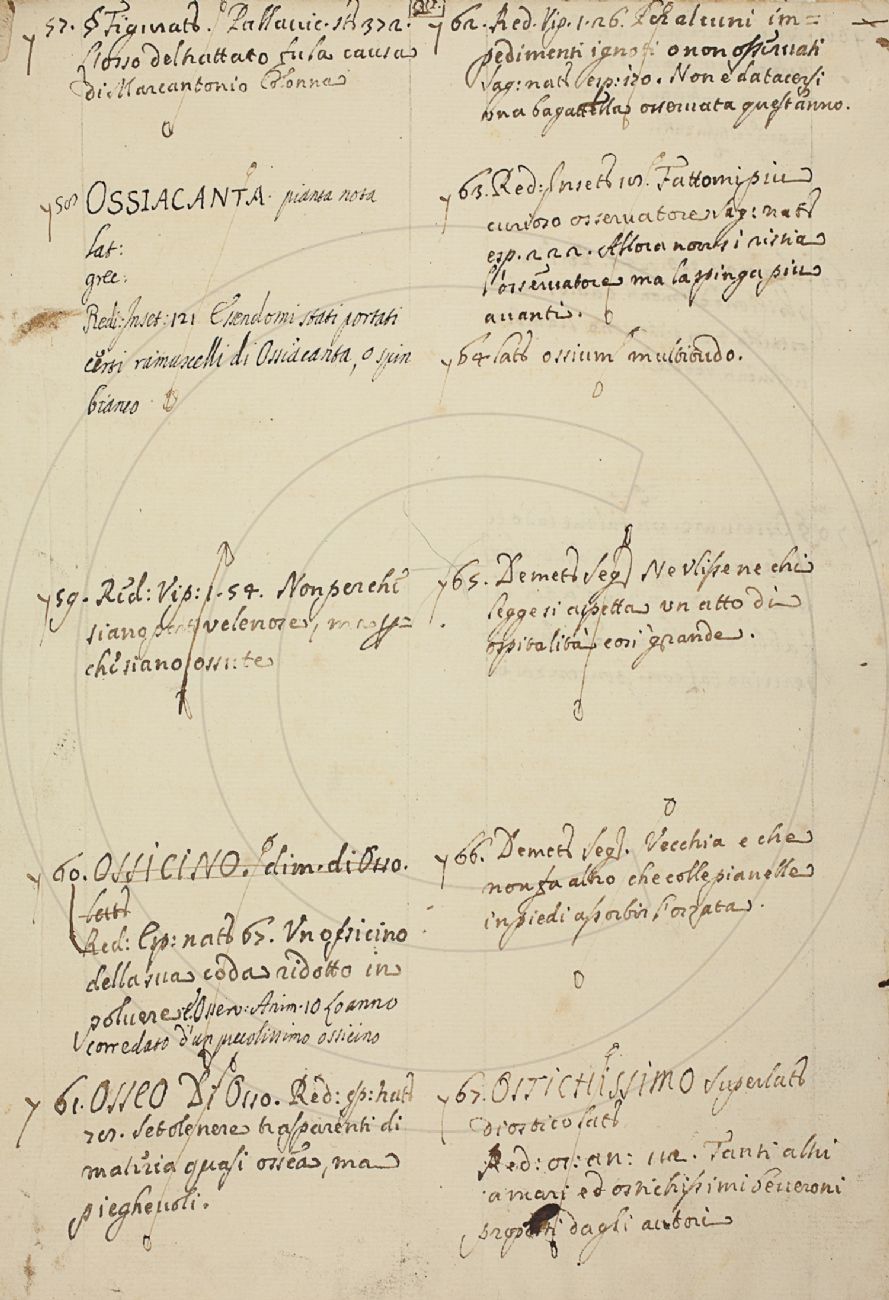 57. § Figurat. Pallavic. st. 372.
L'osso del trattato fu la causa
di Marcantonio Colonna
58 OSSIACANTA. pianta nota
Lat:
grec:
Redi: Inset: 121 Essendomi stati portati
certi ramuscelli di Ossiacanta, o spin
bianco
59. Red: Vip: 1. 54. Non perchè
siano velenose, ma p=
chè siano ossute
60. OSSICINO. dim. di Osso.
Latt
Red: Esp: nat 67. Un ossicino
della sua coda ridotto in
polvere Osserv: Anim. 10 Lo anno
corredato d'un piccolissimo ossicino
61. OSSEO Di Osso. Red: esp: nat
Setole nere trasparenti di
materia quasi ossea, ma
pieghevoli.
62. Red. Vip. 1. 26. Per alcuni im=
pedimenti ignoti o non osservati
Sag: nat esp: 130. Non è da tacersi
una bagattella osservata quest'anno.
63. Red: Inset Fattomi più
curioso osservatore Sag: nat
esp. 222. Allora non si ristia
l'osservatore ma la spinga più
avanti.
64 Lat ossium multitudo.
65. Demet Seg Ne Ulisse ne chi
legge si aspetta un atto di
ospitalità così grande.
66. Demet Seg. Vecchia e che
non fa altro che colle pianelle
in piedi assorbir l'orzata.
67. OSTICHISSIMO Superlat
di ostico Lat
Red: os: an: 112. Tanti altri
amari ed ostichissimi beveroni
proposti dagli autori